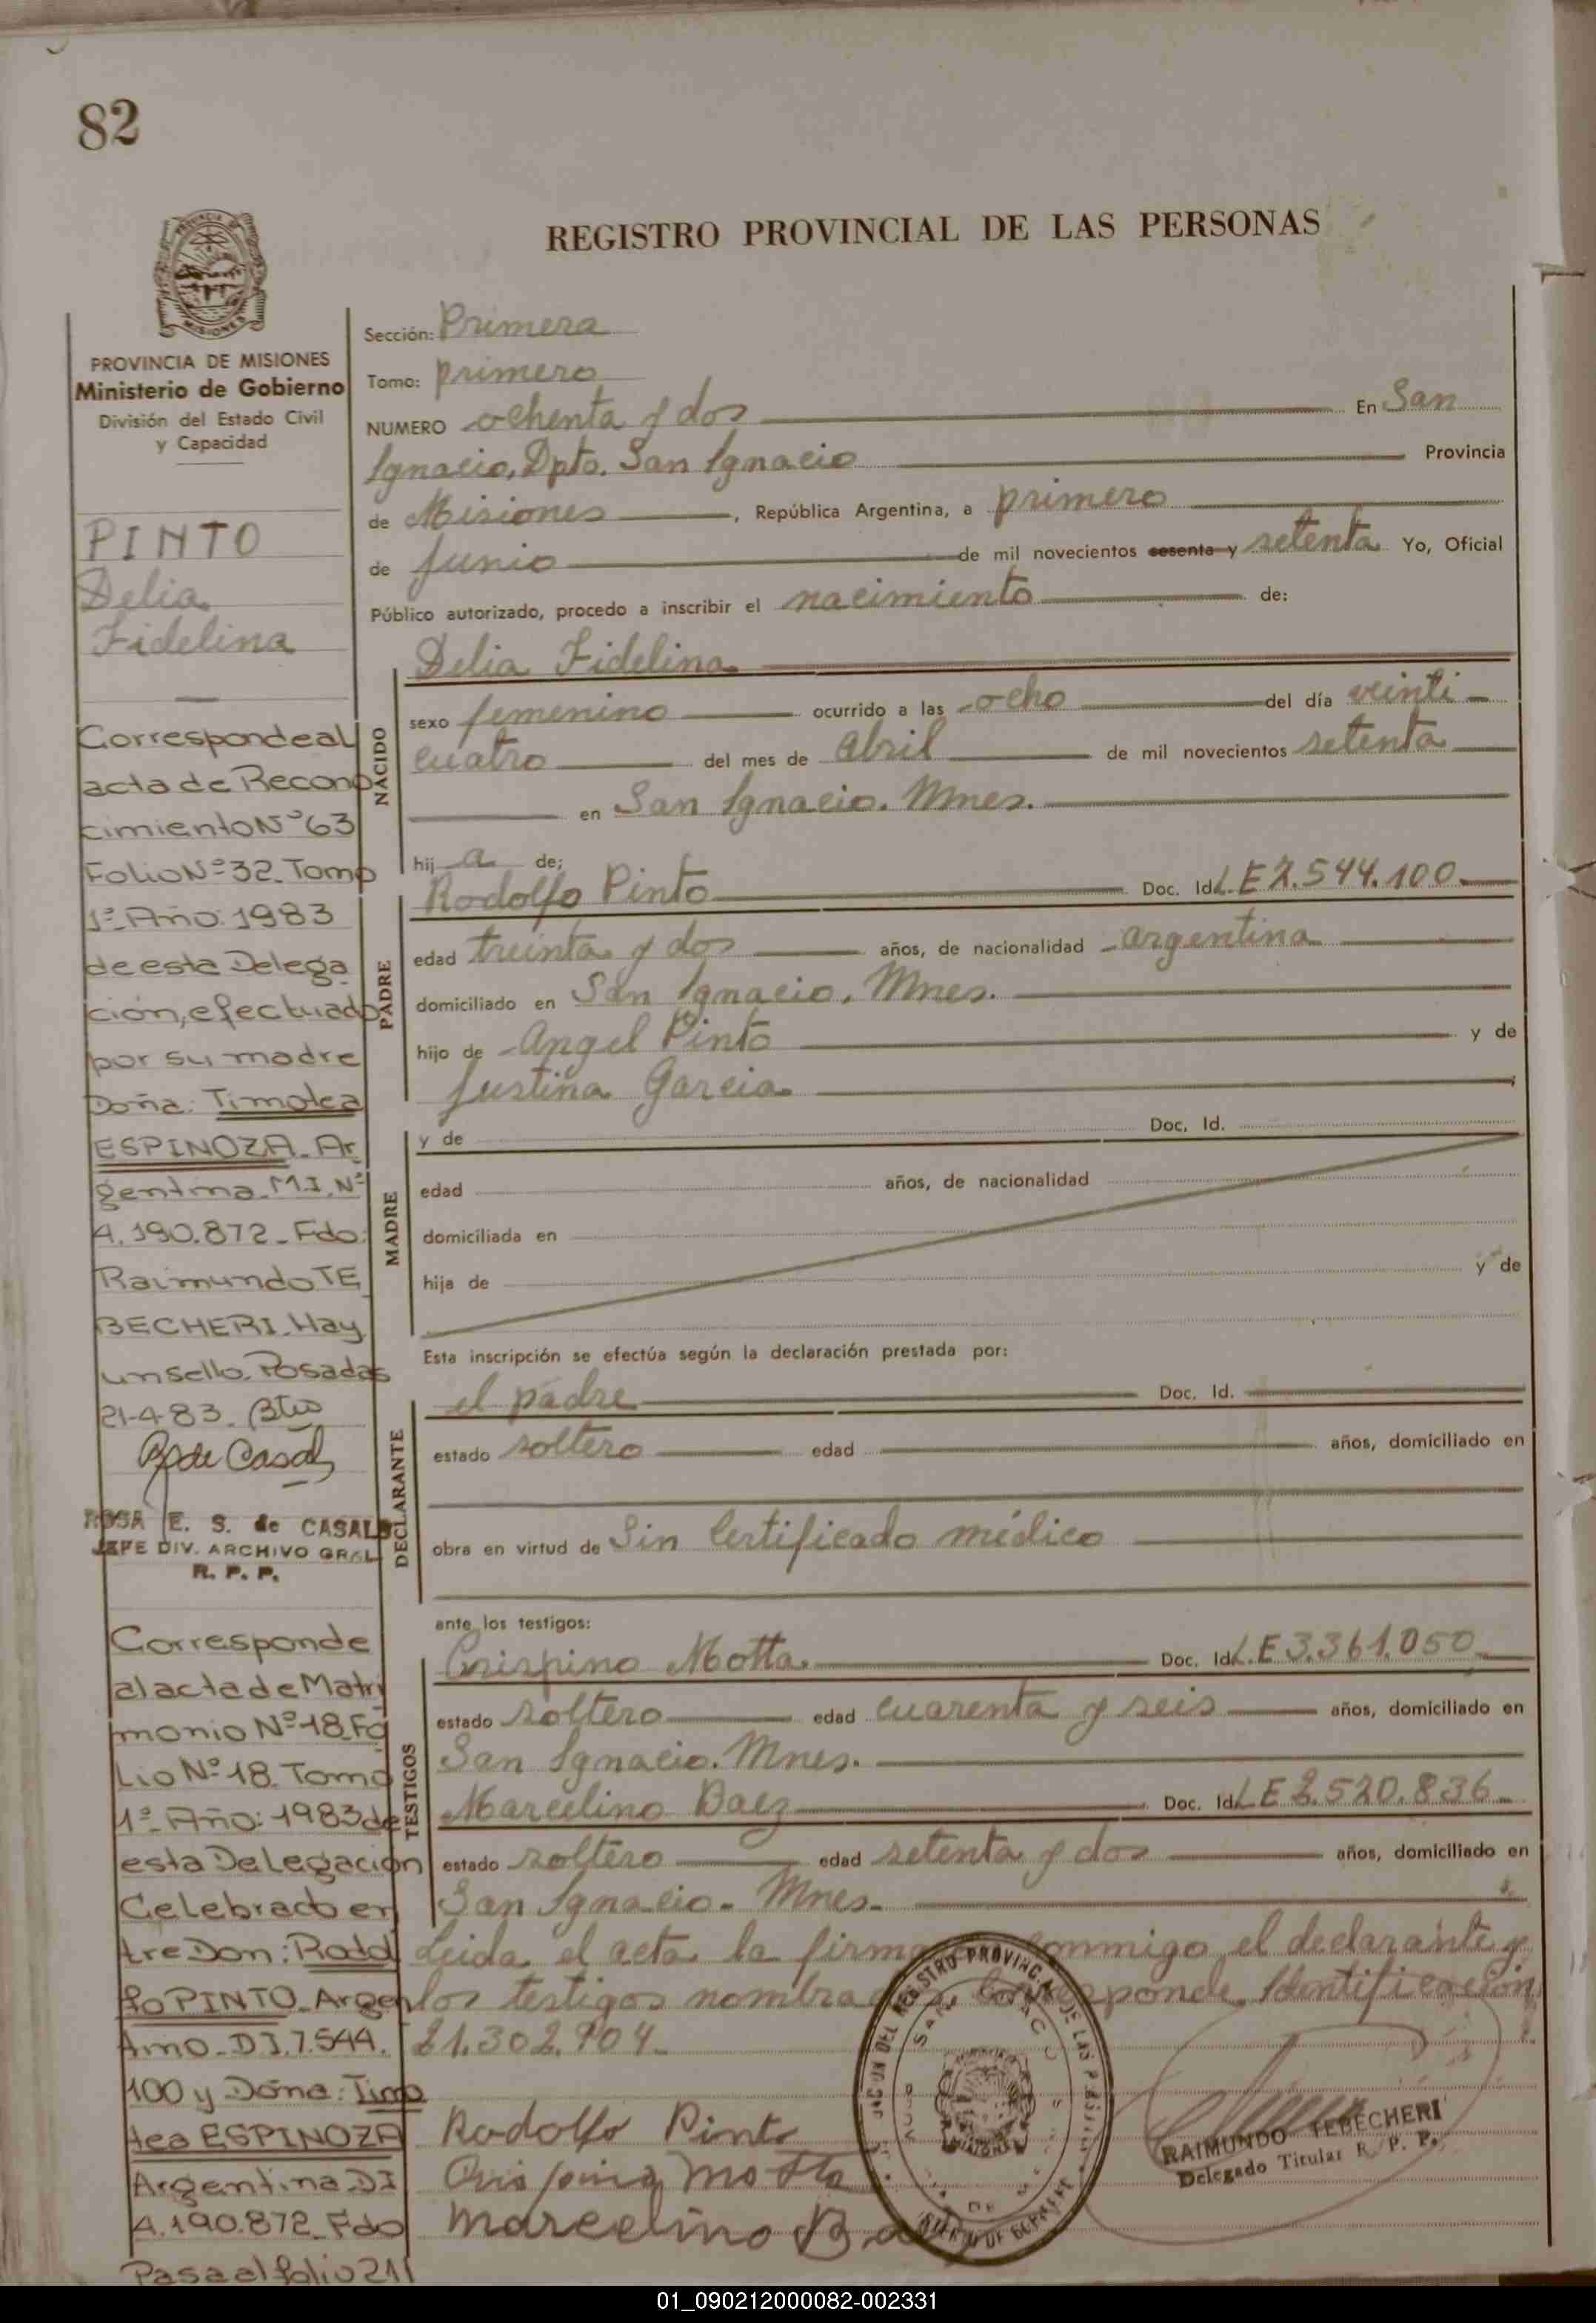 82
REGISTRO PROVINCIAL DE LAS PERSONAS
PROVINCIA DE MISIONES
Ministerio de Gobierno
División del Estado Civil
y Capacidad
PINTO
Delia
Fidelina
Corresponde al
acta de Recono
cimiento Nº 63
Folio Nº 32. Tomo
1º Año: 1983
de esta Delega
ción, efectuado
por su madre
Doña: Timotea
ESPINOZA. Ar
gentina. M.I. Nº
4.190.872 - Fdo:
Raimundo TE
BECHERI. Hay
un sello. Posadas
21-4-83.
R de Casals
ROSA E. S. de CASALS
JEFE DIV. ARCHIVO GRAL
R. P. P.
Corresponde
al acta de Matri
monio Nº 18. Fo
lio Nº 18. Tomo
1º Año: 1983 de
esta Delegación
Celebrado en
tre Don: Rodol
fo PINTO. Argen
tino. DI. 7.544.
100 y Doña: Timo
tea ESPINOZA
Argentina DI
4.190.872. Fdo
Pasa al folio 211
Sección: Primera
Tomo: primero
NUMERO ochenta y dos En San
Ignacio, Dpto. San Ignacio Provincia
de Misiones, República Argentina, a primero
de Junio de mil novecientos sesenta y setenta Yo, Oficial
Público autorizado, procedo a inscribir el nacimiento de:
Delia Fidelina
NACIDO
sexo femenino ocurrido a las ocho del día veinti-
cuatro del mes de abril de mil novecientos setenta
en San Ignacio. Mnes.
hija de:
PADRE
Rodolfo Pinto Doc. Id. L.E 7.544.100
edad treinta y dos años, de nacionalidad argentina
domiciliado en San Ignacio, Mnes.
hijo de Angel Pinto y de
Justina Garcia
MADRE
y de Doc. Id.
edad años, de nacionalidad
domiciliada en
hija de y de
Esta inscripción se efectúa según la declaración prestada por:
DECLARANTE
el padre Doc. Id.
estado soltero edad años, domiciliado en
obra en virtud de Sin Certificado médico
ante los testigos:
TESTIGOS
Crispino Motta Doc. Id. L.E 3.361.050
estado soltero edad cuarenta y seis años, domiciliado en
San Ignacio. Mnes.
Marcelino Baez Doc. Id. L E 2.520.836
estado soltero edad setenta y dos años, domiciliado en
San Ignacio. Mnes.
Leida el acta la firma conmigo el declarante y
los testigos nombrados Corresponde Identificación
21.302.904
Rodolfo Pinto
Crispino Motta
Marcelino
RAIMUNDO TEBECHERI
Delegado Titular R. P. P.
01_090212000082-002331